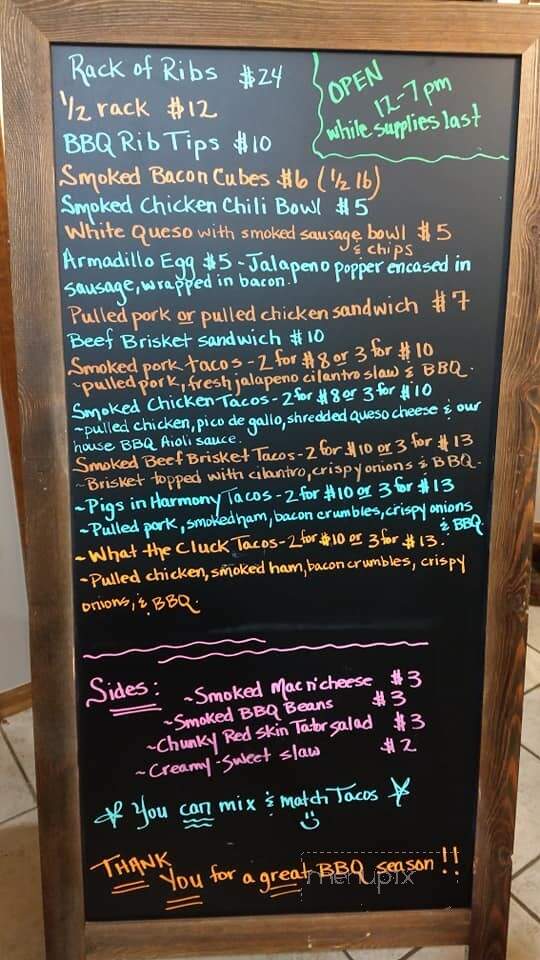 Rack of Ribs $24
OPEN
12-7pm
while supplies last
1/2 rack $12
BBQ Rib Tips $10
Smoked Bacon Cubes $6 (1/2 lb)
Smoked Chicken Chili Bowl $5
White Queso with smoked sausage bowl $5
& chips
Armadillo Egg $5 - Jalapeno popper encased in
sausage, wrapped in bacon.
Pulled pork or pulled chicken sandwich $7
Beef Brisket sandwich $10
Smoked pork tacos - 2 for $8 or 3 for $10
~pulled pork, fresh jalapeno cilantro slaw & BBQ.
Smoked Chicken Tacos - 2 for $8 or 3 for $10
~pulled chicken, pico de gallo, shredded queso cheese & our
house BBQ Aioli sauce.
Smoked Beef Brisket Tacos - 2 for $10 or 3 for $13
~Brisket topped with cilantro, crispy onions & BBQ.
~Pigs in Harmony Tacos - 2 for $10 or 3 for $13
~Pulled pork, smoked ham, bacon crumbles, crispy onions
& BBQ.
~What the Cluck Tacos - 2 for $10 or 3 for $13.
~Pulled chicken, smoked ham, bacon crumbles, crispy
onions, & BBQ.
Sides: ~Smoked Mac n' cheese $3
~Smoked BBQ Beans $3
~Chunky Red skin Tator salad $3
~Creamy-Sweet slaw $2
You can mix & match Tacos
THANK
You for a great BBQ season!!
menupix